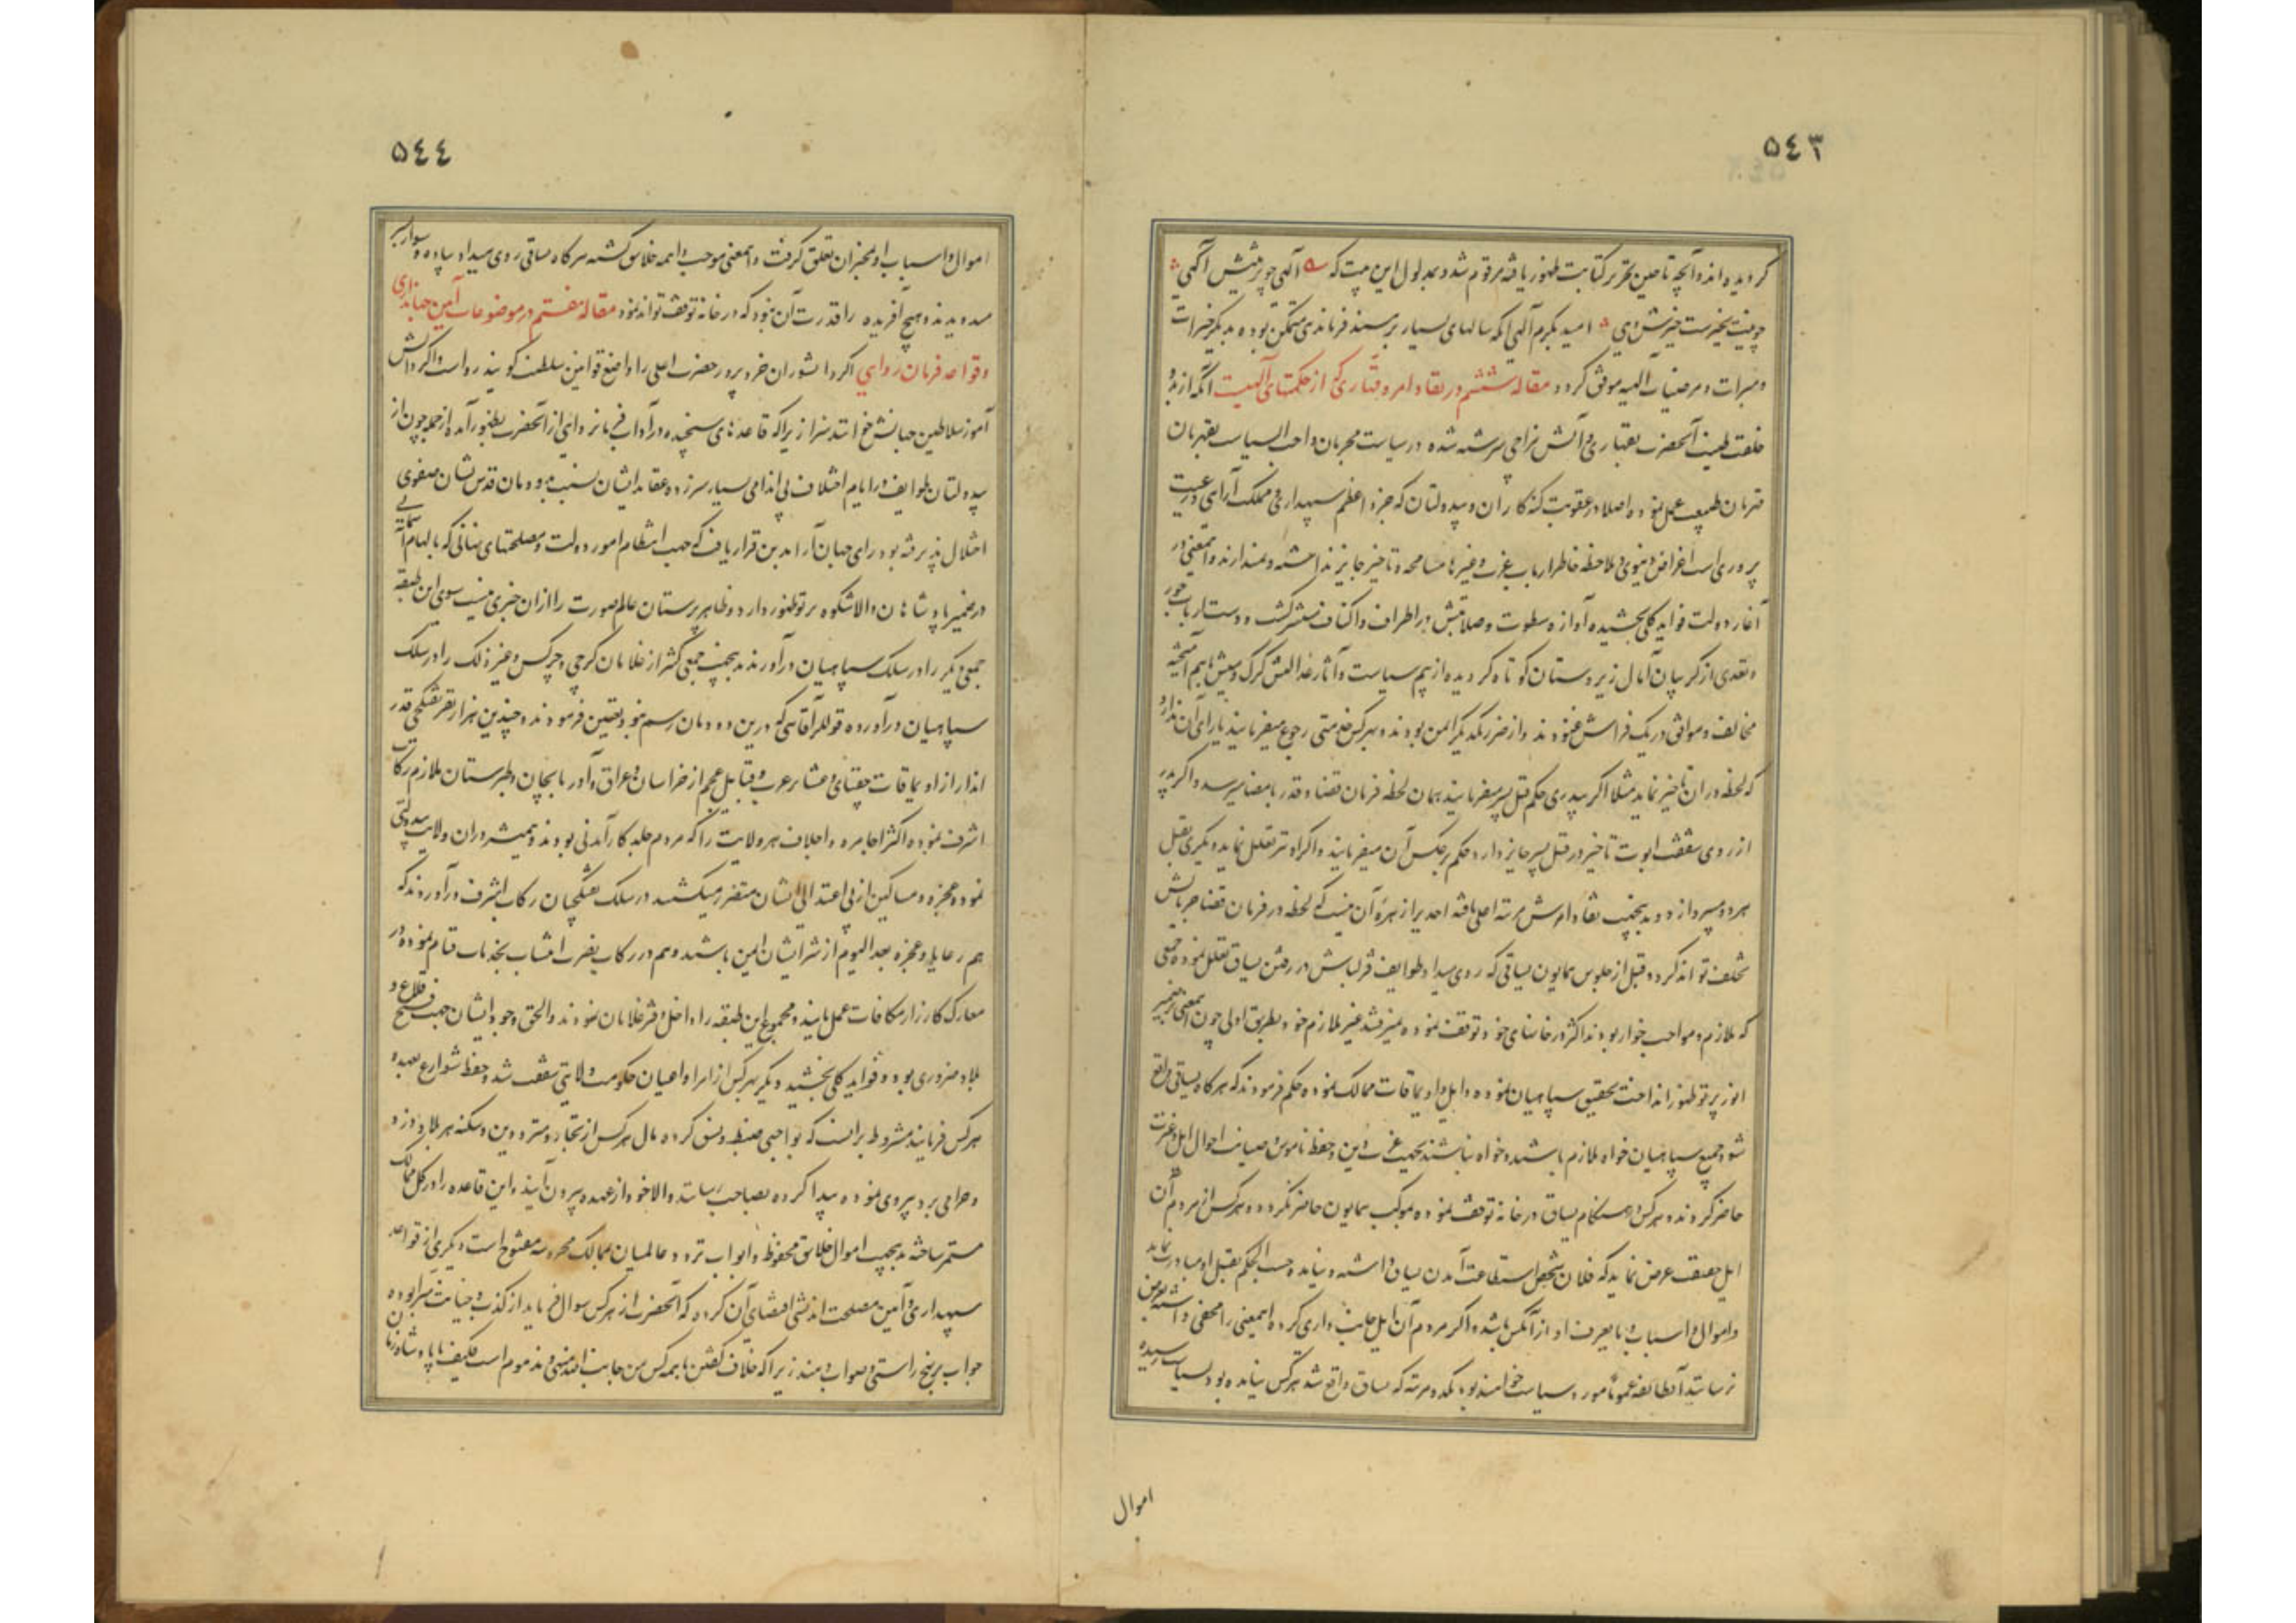 ٥٤٣
گردیده اند و آنچه تا حین تحریر کتابت ظهور یافته مرقوم شد و بمدلول این بیت که الهی چو بینش آگهی
چو نیت بخیرست خیرش دهی امید بکرم آلهی آنکه سالهای بسیار بر مسند فرماندهی متمکن بوده بدیگر خیرات
و مبرات و مرضیات آلهیه موفق گردد مقاله ششم در نفاذ امر و قهاری که از حکمتهای آلهیست آنکه از بدو
خلقت طینت آنحضرت بقهاری و آتش مزاجی سرشته شده در سیاست مجرمان واجب السیاست بقهرمان
قهرمان طبیعت عمل نموده اصلا در عقوبت گنه کاران و بیدولتان که جزو اعظم سپهداری و مملکت آرای و رعیت
پروری است اغراض دنیوی و ملاحظه خاطر ارباب عزت و غیرها مسامحه و تاخیر جایز نداشته و نمیدارند و اینمعنی در
آغاز دولت فواید کلی بخشیده آوازه سطوت و صلابتش در اطراف و اکناف منتشر گشت و دست ارباب جور
و تعدی از گریبان آمال زیردستان کوتاه گردیده از بیم سیاست و آثار عدالتش گرگ و میش باهم آمیخته
مخالف و موافق در یک فراش غنوده‌اند و از ضرر یکدیگر ایمن بودند و بهر کس خدمتی رجوع میفرمایند یارای آن ندارد
که لحظه در ان تاخیر نماید مثلا اگر پدری حکم قتل پسر میفرمایند همان لحظه فرمان قضا و قدر بامضا میرسد و اگر پدر
از روی شفقت ابوت تاخیر در قتل پسر جایز دارد حکم بر عکس آن میفرمایند و اگر او نیز تعلل نماید دیگری بقتل
هر دو میپردازد و بدینجهت نفاذ امرش مرتبه اعلی یافته احدیرا زهره آن نیست که لحظه در فرمان قضا جریانش
تخلف تواند کرد و قبل از جلوس همایون یساقی که روی میداد طوایف قزلباش در رفتن یساق تعلل نموده جمعی
که ملازم و مواجب خوار بودند اکثر در خانهای خود توقف نموده نمیرفتند غیر ملازم خود بطریق اولی چون اینمعنی بر ضمیر
انور پرتو ظهور انداخت تحقیق سپاهیان نموده و ایل و اویماقات ممالک نموده حکم فرمودند که هر گاه یساقی واقع
شود جمیع سپاهیان خواه ملازم باشند و خواه نباشند بجهت غیرت دین و حفظ ناموس و صیانت احوال اهل و عترت
حاضر گردند و هر کس در هنگام یساق در خانه توقف نموده بموکب همایون حاضر نگردد و هر کس از مردم آن
ایل بصدق عرض نماید که فلان شخص استطاعت آمدن یساق داشته و نیامده حسب الحکم بقتل او مبادرت نماید
و اموال و اسباب و مایعرف او از آنکس باشد و اگر مردم آن ایل جانب داری کرده اینمعنی را مخفی داشته بعرض
نرسانند آنطایفه عموماً مورد سیاست خواهند بود یکدو مرتبه که یساق واقع شد هر کس نیامده بود بسیاست رسیده
اموال
٥٤٤
اموال و اسباب او بمخبران تعلق گرفت و اینمعنی موجب واهمه خلایق گشته هر گاه یساقی روی میداد پیاده و سوار بسر
میدویدند و هیچ آفریده را قدرت آن نبود که در خانه توقف تواند نمود مقاله هفتم در موضوعات آئین جهانداری
و قواعد فرمان روایی اگر دانشوران خرد پرور حضرت اعلی را واضع قوانین سلطنت گویند رواست و اگر دانش
آموز سلاطین جهانش خوانند سزا زیرا که قاعده‌های سنجیده در آداب فرمانروایی از آنحضرت بظهور آمده از جمله چون از
بیدولتان طوایف در ایام اختلاف بی اندامی بسیار سرزده عقاید ایشان بنسبت بدودمان قدس نشان صفوی
اختلال پذیرفته بود رای جهان آرا بدین قرار یافت که جهت انتظام امور دولت و مصلحتهای نهانی که بالهام آسمانی
در ضمیر پادشاهان والاشکوه پرتو ظهور دارد و ظاهر پرستان عالم صورت را از ان خبری نیست سوی این طبقه
جمعی دیگر را در سلک سپاهیان در آورند بدینجهت جمعی کثیر از غلامان گرجی و چرکس و غیر ذلک را در سلک
سپاهیان در آورده قوللر آقاسی که در ین دودمان رسم نبود تعیین فرمودند و چندین هزار نفر تفنگچی قدر
انداز از اویماقات جغتای و عشایر عرب و قبایل عجم از خراسان و عراق و آذربایجان و طبرستان ملازم رکاب
اشرف نموده اکثر اجامره و اجلاف هر ولایت را که مردم جلد کارآمدنی بودند و همیشه در ان ولایت بیدولتی
نموده عجزه و مساکین از بی اعتدالی ایشان متضرر میگشتند در سلک تفنگچیان رکاب اشرف در آوردند که
هم رعایا و عجزه بعد الیوم از شر ایشان ایمن باشند و هم در رکاب نصرت انتساب بخدمات قیام نموده در
معارک کارزار مکافات عمل یابند و مجموع این طبقه را داخل دفتر غلامان نمودند و الحق وجود ایشان جهت فتح قلاع و
بلاد ضروری بود و فواید کلی بخشید دیگر بهر کس از امرا و اعیان حکومت ولایتی شفقت شد و حفظ شوارع بعهده
هر کس فرمایند مشروط بر اینست که بواجبی ضبط و نسق کرده مال هر کس از تجار و مترددین و سکنه هر بلاد دزد و
و حرامی برد پیروی نموده پیدا کرده بصاحب رسانند و الا خود از عهده بیرون آیند و این قاعده را در کل ممالک
مستمر ساخته بدینجهت اموال خلایق محفوظ و ابواب تردد عالمیان بممالک محروسه مفتوح است دیگری از قواعد
سپهداری و آئین مصلحت اندیشی اقتضای آن کرده که آنحضرت از هر کس سوال فرماید از کذب و خیانت مبرا بوده
جواب بر نهج راستی و صواب دهند زیرا که خلاف گفتن با همه کس من جانب الله منهی و مذموم است فکیف با پادشاه زمان